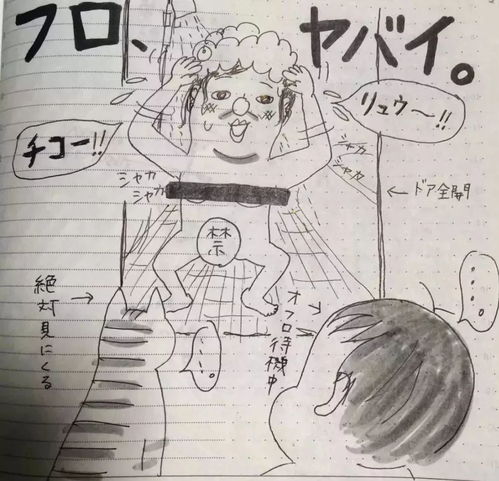 フロ、ヤバイ。
チコー!!
リュウ〜!!
シャカ
シャカ
シャカ
シャカ
←ドア全開
禁
絶対見にくる→
・・・・。
オフロ待機中→
・・・・。